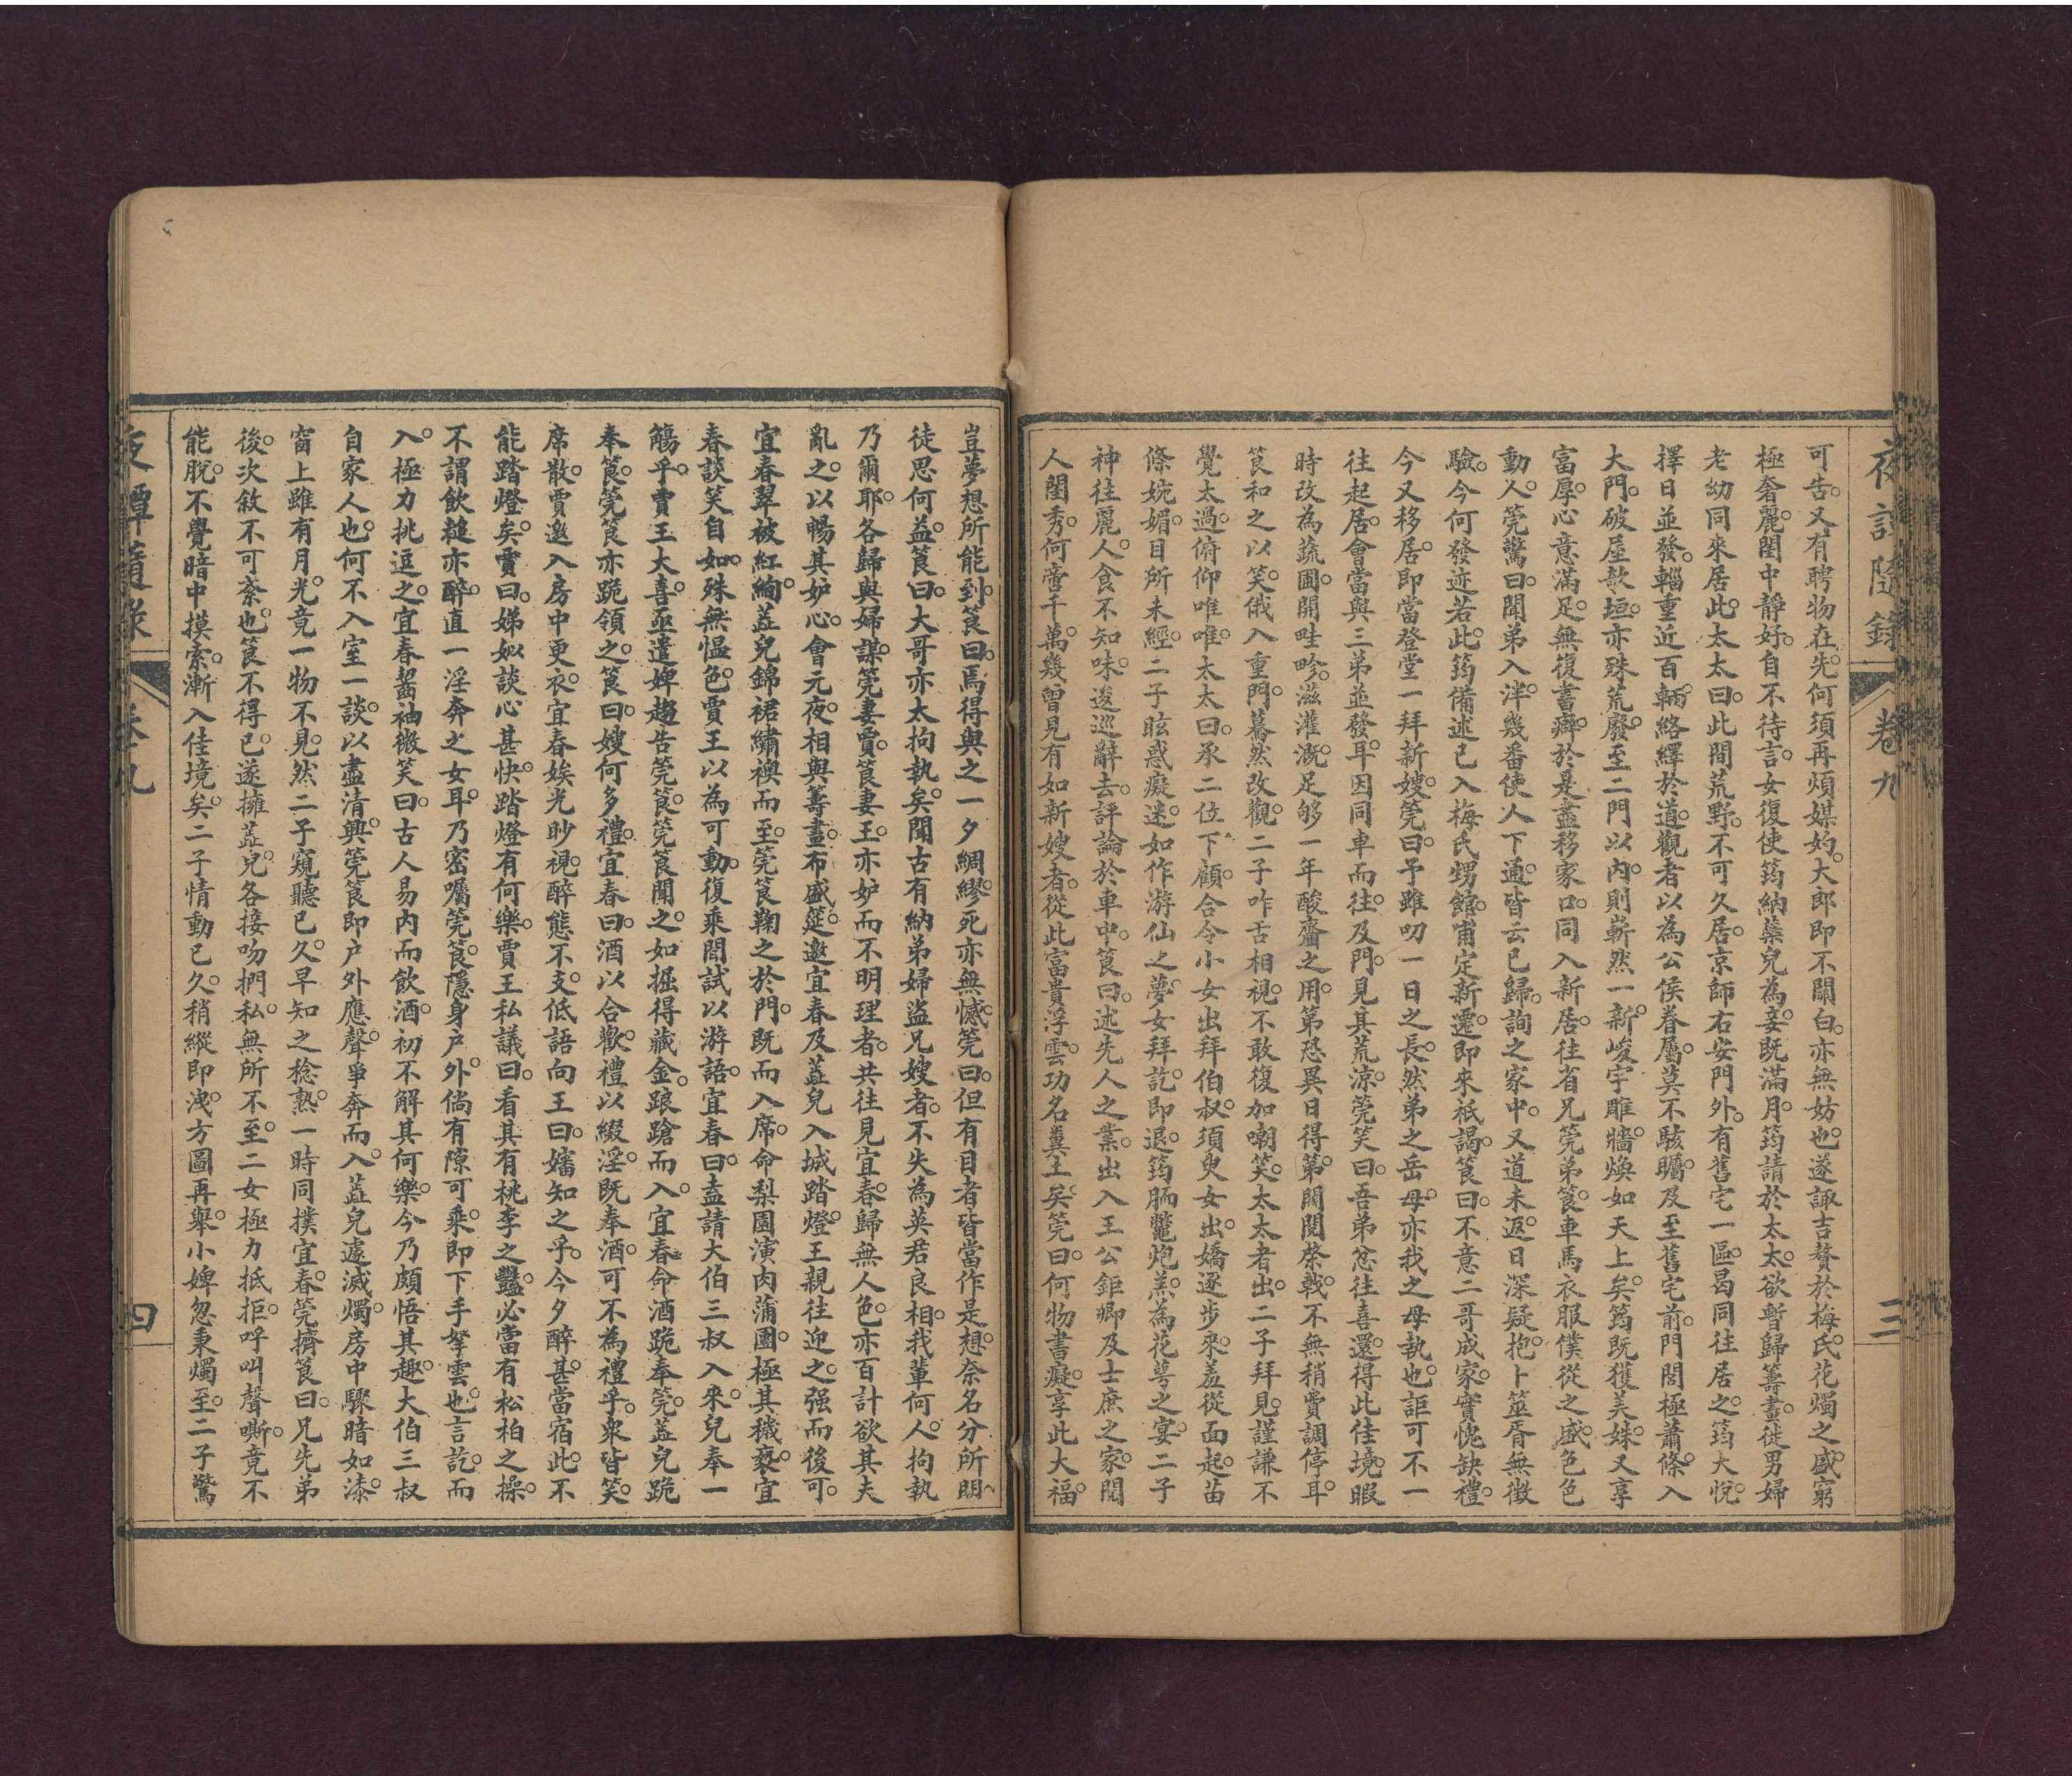 夜譚隨錄 卷九 三
可告。又有聘物在先。何須再煩媒妁。大郎即不關白。亦無妨也。遂諏吉贅於梅氏。花燭之盛。窮
極奢麗。閨中靜好。自不待言。女復使筠納蘂兒為妾。既滿月。筠請於太太。欲暫歸籌畫。徒男婦
老幼同來居此。太太曰。此間荒野。不可久居。京師右安門外。有舊宅一區。曷同往居之。筠大悅。
擇日並發。輜重近百輛。絡繹於道。觀者以為公侯眷屬。莫不駭矚。及至舊宅前。門閭極蕭條。入
大門。破屋欹垣。亦殊荒廢。至二門以內。則嶄然一新。峻宇雕牆。煥如天上矣。筠既獲美姝。又享
富厚。心意滿足。無復書癖。於是盡移家口。同入新居。往省兄筦弟筤。車馬衣服僕從之盛。色色
動人。筦驚曰。聞弟入泮。幾番使人下通。皆云已歸。詢之家中。又道未返。日深疑抱。卜筮胥無徵
驗。今何發迹若此。筠備述已入梅氏甥館。甫定新遷。即來祇謁。筤曰。不意二哥成家。實愧缺禮。
今又移居。即當登堂一拜新嫂。筦曰。予雖叨一日之長。然弟之岳母。亦我之母執也。詎可不一
往起居。會當與三弟並發耳。因同車而往。及門。見其荒涼。筦笑曰。吾弟忿往喜還。得此佳境。暇
時改為蔬圃。開畦畛。滋灌溉。足够一年酸齏之用。第恐異日得第。閥閱棨戟。不無稍費調停耳。
筤和之以笑。俄入重門。驀然改觀。二子咋舌相視。不敢復加嘲笑。太太者出。二子拜見。謹謙不
覺太過。俯仰唯唯。太太曰。承二位下顧。合令小女出拜伯叔。須臾女出。嬌逐步來。羞從面起。苗
條婉媚。目所未經。二子眩惑癡迷。如作游仙之夢。女拜訖即退。筠胹鼈炮羔。為花萼之宴。二子
神往麗人。食不知味。逡巡辭去。評論於車中。筤曰。述先人之業。出入王公鉅卿及士庶之家。閱
人閨秀。何啻千萬。幾曾見有如新嫂者。從此富貴浮雲。功名糞土矣。筦曰。何物書癡。享此大福。
豈夢想所能到。筤曰。焉得與之一夕綢繆。死亦無憾。筦曰。但有目者皆當作是想。奈名分所關。
徒思何益。筤曰。大哥亦太拘執矣。聞古有納弟婦盜兄嫂者。不失為英君良相。我輩何人。拘執
乃爾耶。各歸與婦謀。筦妻賈。筤妻王。亦妒而不明理者。共往見宜春。歸無人色。亦百計欲其夫
亂之。以暢其妒心。會元夜。相與籌畫。布盛筵。邀宜春及蕋兒入城踏燈。王親往迎之。强而後可。
宜春翠被紅絢。蕋兒錦裙繡襖而至。筦筤鞠之於門。既而入席。命梨園演肉蒲團。極其穢褻。宜
春談笑自如。殊無愠色。賈王以為可動。復乘間試以游語。宜春曰。盍請大伯三叔入來。兒奉一
觴乎。賈王大喜。亟遣婢趨告筦筤。筦筤聞之。如掘得藏金。踉蹌而入。宜春命酒跪奉筦。蕋兒跪
奉筤。筦筤亦跪領之。筤曰。嫂何多禮。宜春曰。酒以合歡。禮以綴淫。既奉酒。可不為禮乎。衆皆笑。
席散。賈邀入房中更衣。宜春娭光眇視。醉態不支。低語向王曰。嬸知之乎。今夕醉甚。當宿此。不
能踏燈矣。賈曰。娣姒談心甚快。踏燈有何樂。賈王私議曰。看其有桃李之豔。必當有松柏之操。
不謂飲趢亦醉。直一淫奔之女耳。乃密囑筦筤。隱身户外。倘有隙可乘。即下手拏雲也。言訖。而
入。極力挑逗之。宜春齧袖微笑曰。古人易內而飲酒。初不解其何樂。今乃頗悟其趣。大伯三叔
自家人也。何不入室一談。以盡清興。筦筤即户外應聲。爭奔而入。蕋兒遽滅燭。房中驟暗如漆。
窗上雖有月光。竟一物不見。然二子窺聽已久。早知之稔熟。一時同撲宜春。筦擠筤曰。兄先弟
後。次敘不可紊也。筤不得已。遂擁蕋兒。各接吻捫私。無所不至。二女極力抵拒。呼叫聲嘶。竟不
能脫。不覺暗中摸索。漸入佳境矣。二子情動已久。稍縱即洩。方圖再舉。小婢忽秉燭至。二子驚
夜譚隨錄 卷九 四